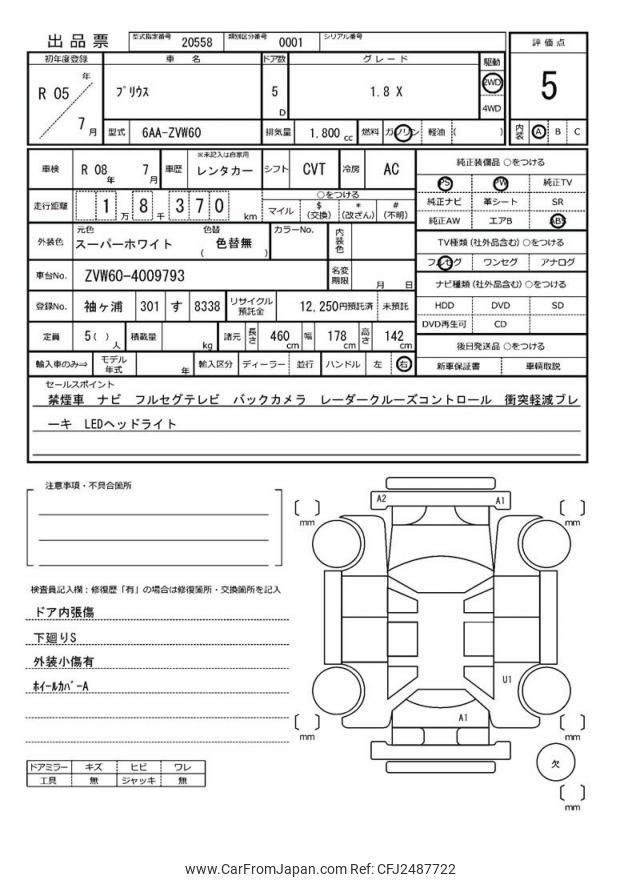 出品票 型式指定番号 20558 類別区分番号 0001 シリアル番号
初年度登録 車 名 ドア数 グレード 駆動 評価点
R 05 年 7 月 プリウス 5 D 1.8 X 2WD 4WD 5
型式 6AA-ZVW60 排気量 1.800 cc 燃料 ガソリン 軽油 ( ) 内装 A B C
車検 R 08 年 7 月 車歴 ※未記入は自家用 レンタカー シフト CVT 冷房 AC
純正装備品 ○をつける
PS PW 純正TV
走行距離 1 万 8 千 3 7 0 km ○をつける
マイル $ (交換) * (改ざん) # (不明)
純正ナビ 革シート SR
純正AW エアB ABS
外装色 元色 スーパーホワイト 色替 ( 色替無 ) カラーNo. 内装色
TV種類 (社外品含む) ○をつける
フルセグ ワンセグ アナログ
車台No. ZVW60-4009793 名変期限 月 日
ナビ種類 (社外品含む) ○をつける
登録No. 袖ヶ浦 301 す 8338 リサイクル預託金 12,250円預託済 未預託
HDD DVD SD
DVD再生可 CD
定員 5 ( ) 人 積載量 kg 諸元 長さ 460 cm 幅 178 cm 高さ 142 cm
後日発送品 ○をつける
輸入車のみ⇒ モデル年式 年 輸入区分 ディーラー 並行 ハンドル 左 右
新車保証書 車輌取説
セールスポイント
禁煙車 ナビ フルセグテレビ バックカメラ レーダークルーズコントロール 衝突軽減ブレ
ーキ LEDヘッドライト
注意事項・不具合箇所
A2 A1
mm mm
検査員記入欄：修復歴「有」の場合は修復箇所・交換箇所を記入
ドア内張傷
下廻りS
外装小傷有
ホイールカバーA
U1
A1
mm mm
欠
mm
ドアミラー キズ ヒビ ワレ
工具 無 ジャッキ 無
www.CarFromJapan.com Ref: CFJ2487722